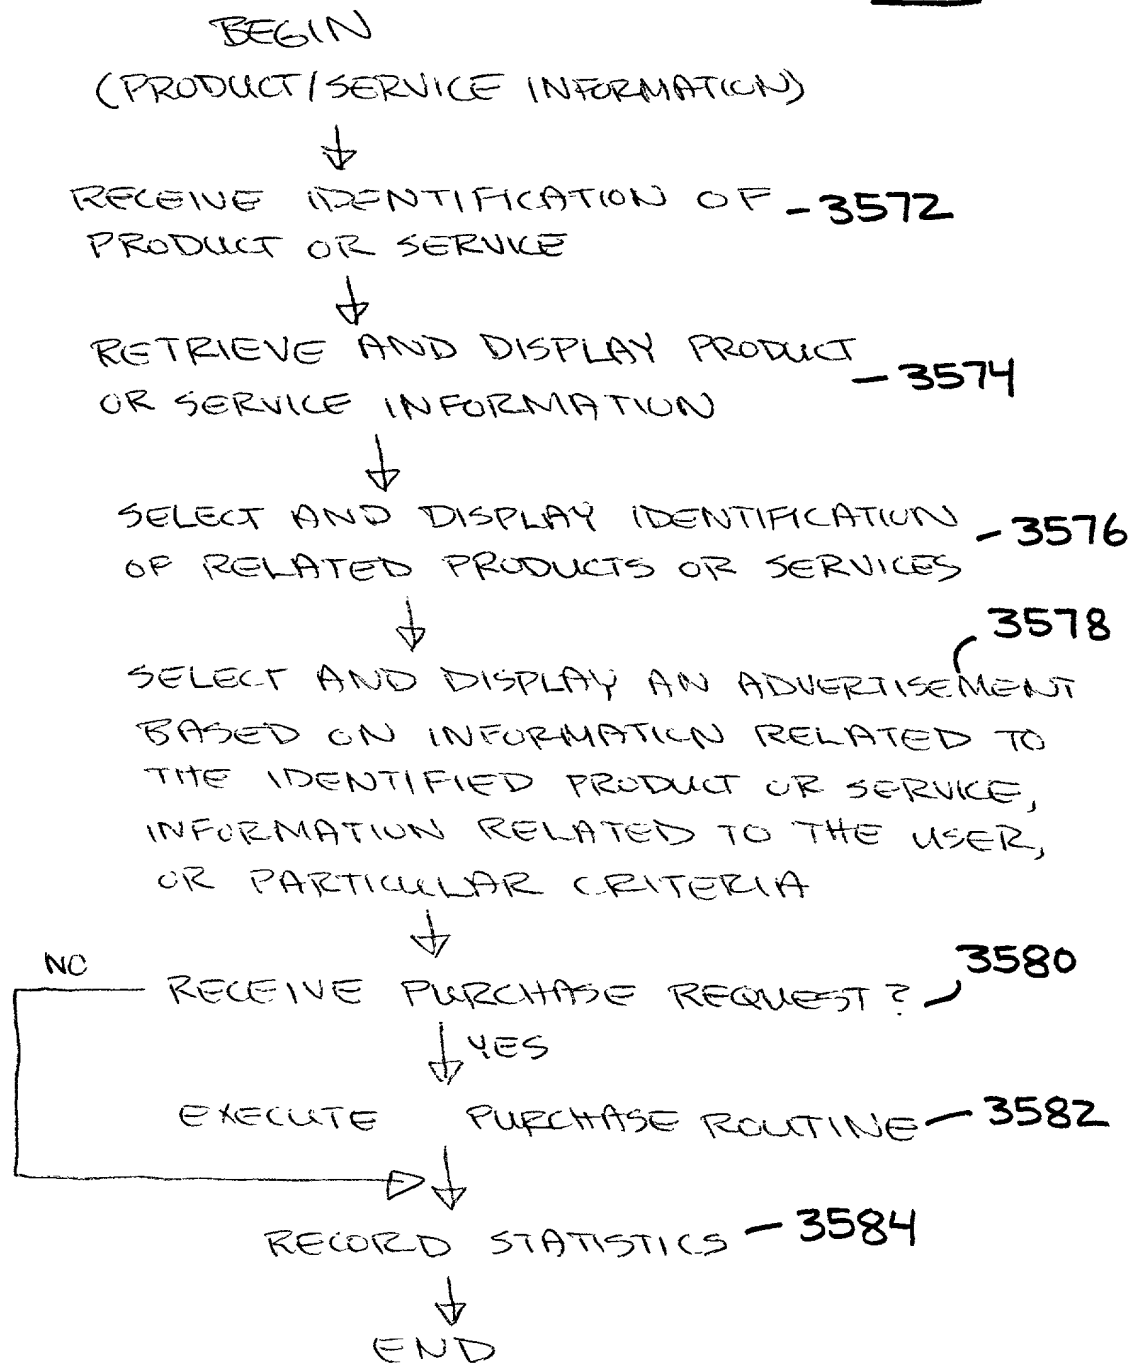 BEGIN
(PRODUCT/SERVICE INFORMATION)
RECEIVE IDENTIFICATION OF - 3572
PRODUCT OR SERVICE
RETRIEVE AND DISPLAY PRODUCT
OR SERVICE INFORMATION - 3574
SELECT AND DISPLAY IDENTIFICATION
OF RELATED PRODUCTS OR SERVICES - 3576
3578
SELECT AND DISPLAY AN ADVERTISEMENT
BASED ON INFORMATION RELATED TO
THE IDENTIFIED PRODUCT OR SERVICE,
INFORMATION RELATED TO THE USER,
OR PARTICULAR CRITERIA
NO
RECEIVE PURCHASE REQUEST? 3580
YES
EXECUTE PURCHASE ROUTINE - 3582
RECORD STATISTICS - 3584
END